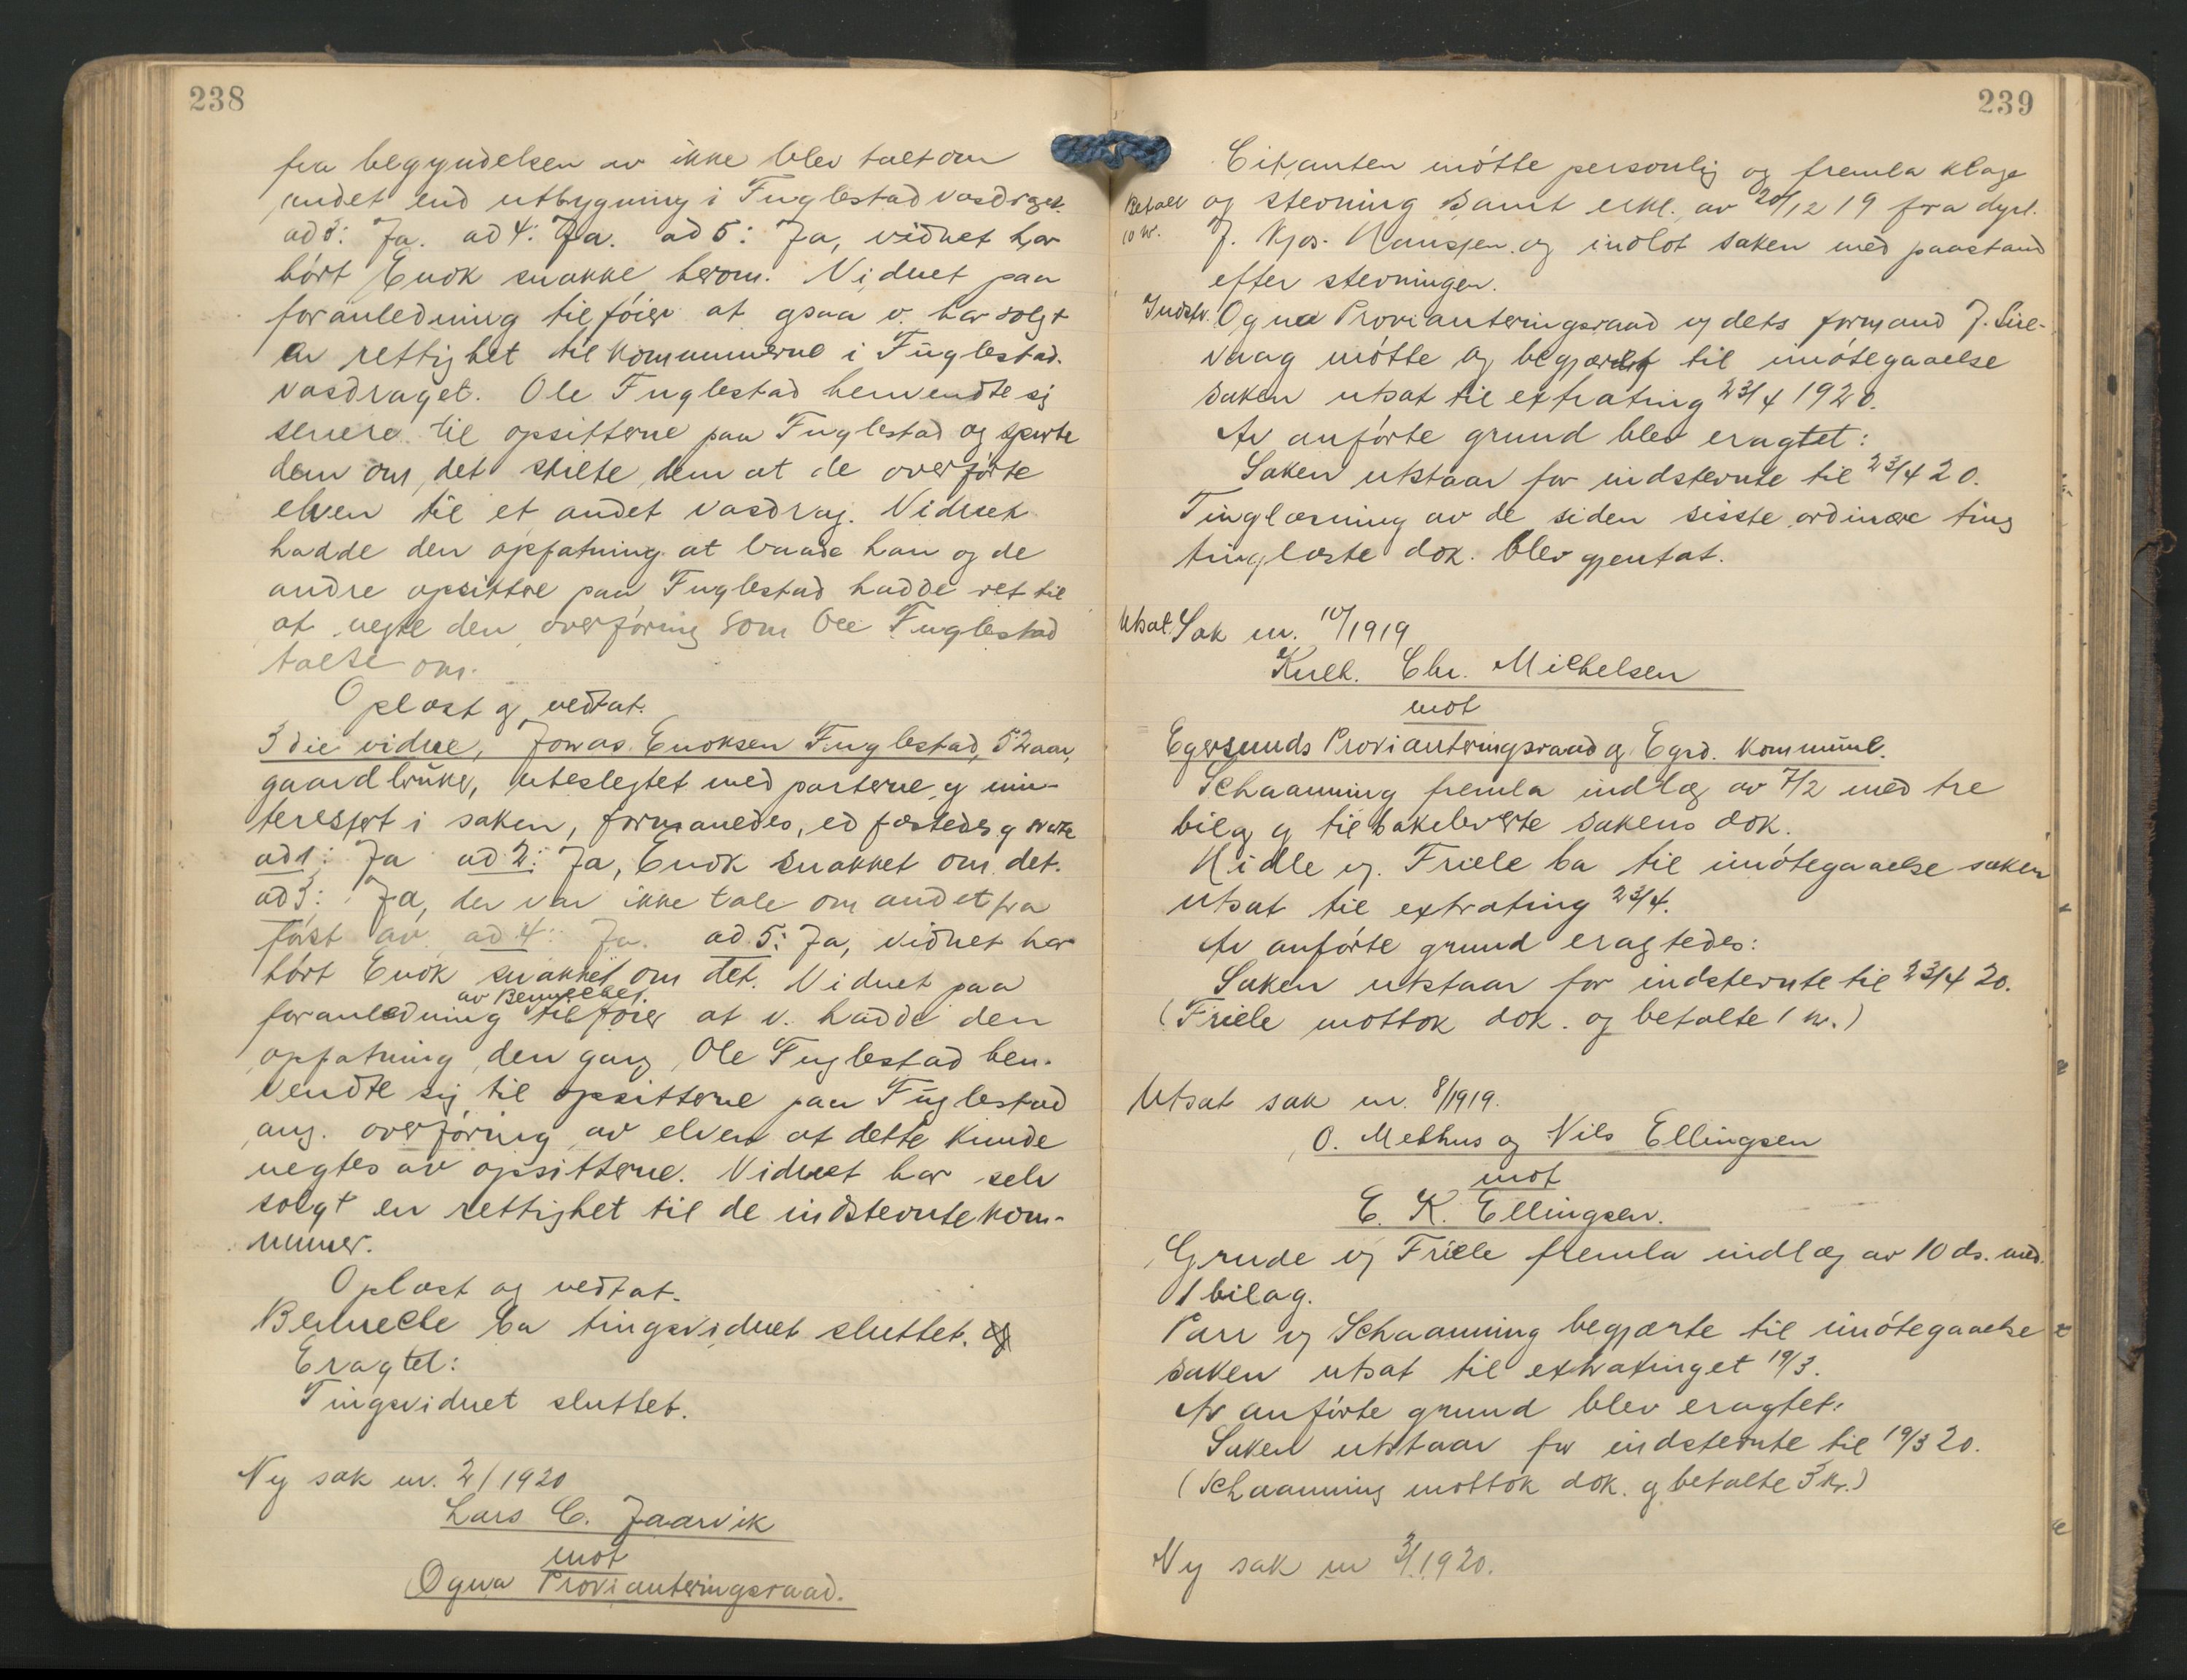 238
fra begyndelsen av ikke blev talt om
andet end utbygning i Fuglestad vasdraget.
ad 3: Ja. ad 4: Ja. ad 5: Ja, vidnet har
hørt Enok snakke herom. Vidnet paa
foranledning tilføier at ogsaa v. har solgt
en rettighet til kommunerne i Fuglestad-
vasdraget. Ole Fuglestad henvendte sig
senere til opsitterne paa Fuglestad og spurte
dem om det skilte dem at de overførte
elven til et andet vasdrag. Vidnet
hadde den opfatning at baade han og de
andre opsittere paa Fuglestad hadde ret til
at negte den overføring som Ole Fuglestad
talte om.
Oplæst og vedtat.
3die vidne, Jonas Enoksen Fuglestad, 52 aar,
gaardbruker, ubeslegtet med parterne og uin-
teressert i saken, formanedes, ed fæstedes og svarte
ad 1: Ja ad 2: Ja, Enok snakket om det.
ad 3: Ja, der var ikke tale om andet fra
først av. ad 4: Ja. ad 5: Ja, vidnet har
hørt Enok snakket om det. Vidnet paa
av Benneche
foranledning tilføier at v. hadde den
opfatning den gang Ole Fuglestad hen-
vendte sig til opsitterne paa Fuglestad
ang. overføring av elven at dette kunde
negtes av opsitterne. Vidnet har selv
solgt en rettighet til de indstevnte kom-
muner.
Oplæst og vedtat.
Benneche ba tingsvidnet sluttet.
Eragtet:
Tingsvidnet sluttet.
Ny sak nr. 2/1920
Lars C. Jaarvik
mot
Ogna Provianteringsraad.
239
Citanten møtte personlig og fremla klage
Betalt
10 kr.
og stevning samt erkl. av 20/12 19 fra dyrl.
J. Kjos-Hanssen og indlot saken med paastand
efter stevningen.
Indstv. Ogna Provianteringsraad og dets formand J. Sire-
vaag møtte og begjært til imøtegaaelse
saken utsat til extrating 23/4 1920.
Av anførte grund blev eragtet:
Saken utstaar for indstevnte til 23/4 20.
Tinglæsning av de siden sisste ordinære ting
tinglæste dok. blev gjentat.
Utsat Sak nr. 10/1919
Chr. Michelsen
mot
Egersunds Provianteringsraad og Egrd. Kommune.
Schaanning fremla indlæg av 7/2 med tre
bilag og tilbakeleverte sakens dok.
Kidle v. Friele ba til imøtegaaelse saken
utsat til extrating 23/4.
Av anførte grund eragtedes:
Saken utstaar for indstevnte til 23/4 20.
(Friele mottok dok. og betalte 1 kr.)
Utsat sak nr. 8/1919.
O. Methus og Nils Ellingsen
mot
E. K. Ellingsen.
Grude v. Friele fremla indlæg av 10 ds. med
1 bilag.
Parr v. Schaanning begjærte til imøtegaaelse
saken utsat til extratinget 19/3.
Av anførte grund blev eragtet:
Saken utstaar for indstevnte til 19/3 20.
(Schaanning mottok dok. og betalte 3 kr.)
Ny sak nr 3/1920.